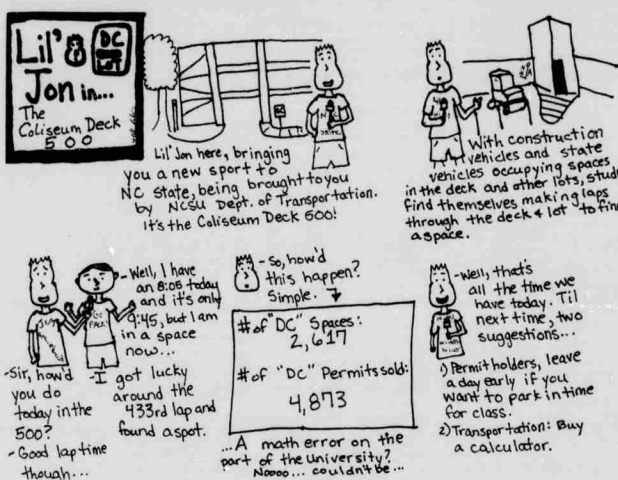 Lil'
DC
LOT
Jon in...
The
Coliseum Deck
500
Lil' Jon here, bringing
you a new sport to
NC State, being brought to you
by NCSU Dept. of Transportation.
It's the Coliseum Deck 500!
With construction
vehicles and state
vehicles occupying spaces
in the deck and other lots,
find themselves making laps
through the deck & lot to
a space.
-Well, I have
an 8:05 today
and it's only
9:45, but I am
in a space
now...
GO
PACK!
-Sir, how'd
you do
today in the
500?
-Good lap time
though...
-I got lucky
around the
433rd lap and
found a spot.
-So, how'd
this happen?
Simple.
# of "DC" Spaces:
2,617
# of "DC" Permits sold:
4,873
...A math error on the
part of the University?
Noooo... couldn't be...
-Well, that's
all the time we
have today. Til
next time, two
suggestions...
1) Permit holders, leave
a day early if you
want to park in time
for class.
2) Transportation: Buy
a calculator.